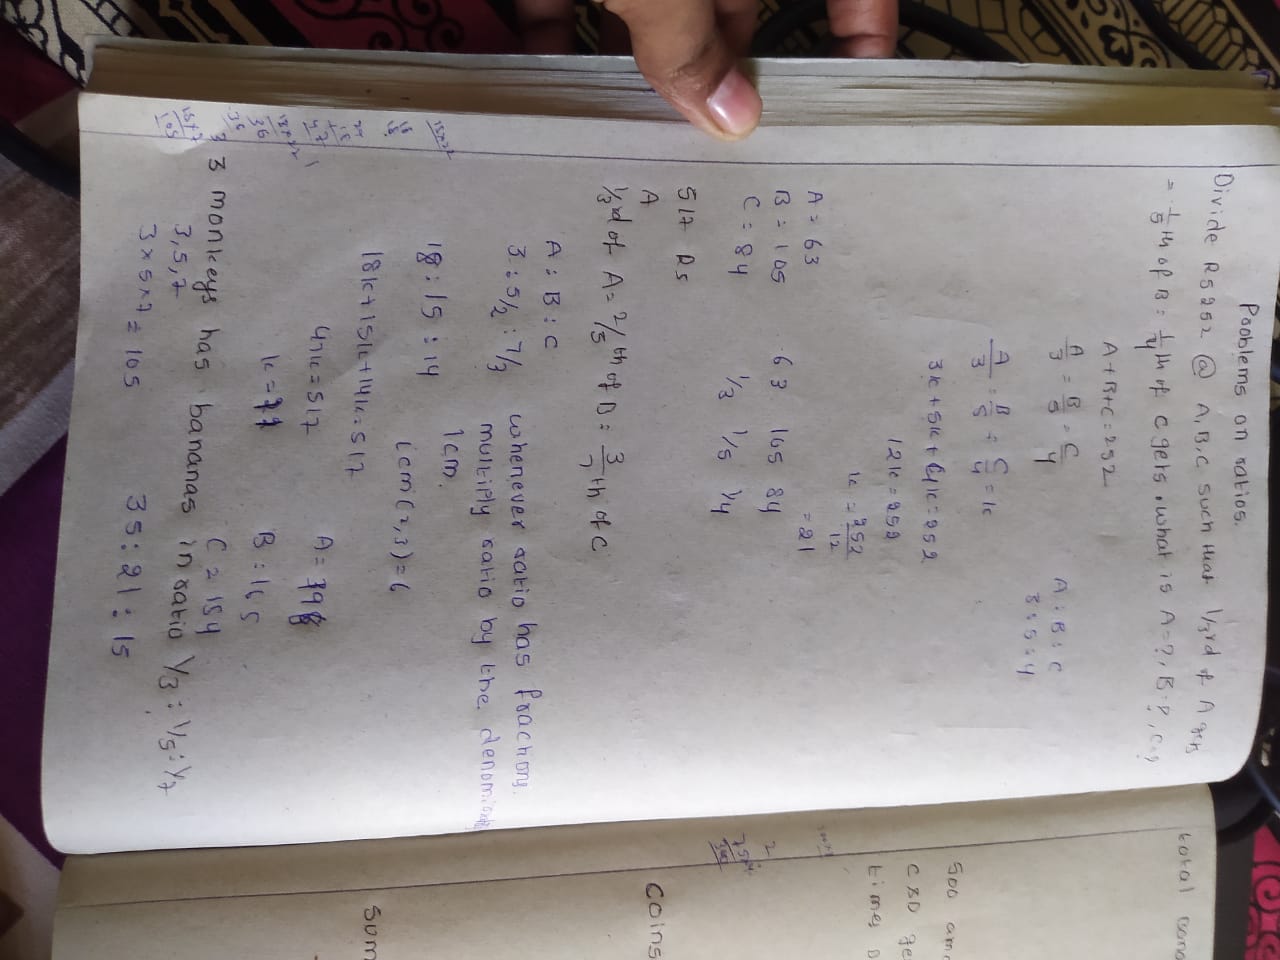 Problems on ratios.
Divide Rs 252 @ A, B, C such that 1/3rd of A gets
= 1/5 th of B = 1/4 th of C gets. what is A=?, B=?, C=?
A+B+C=252
A/3 = B/5 = C/4
A : B : C
3 : 5 : 4
A/3 = B/5 = C/4 = k
3k + 5k + 4k = 252
12k = 252
k = 252/12
= 21
A = 63
B = 105
C = 84
63 105 84
1/3 1/5 1/4
517 Rs
A
1/3rd of A = 2/5 th of B = 3/7 th of C
A : B : C
3 : 5/2 : 7/3
whenever ratio has fractions
multiply ratio by the
lcm.
18 : 15 : 14
lcm(2,3)=6
18k + 15k + 14k = 517
47k = 517
k =
A =
B = 165
C = 154
3 monkeys has bananas in ratio 1/3 : 1/5 : 1/7
3, 5, 7
3 × 5 × 7 = 105
35 : 21 : 15
total
500
C & D ge
times
Coins
Sum